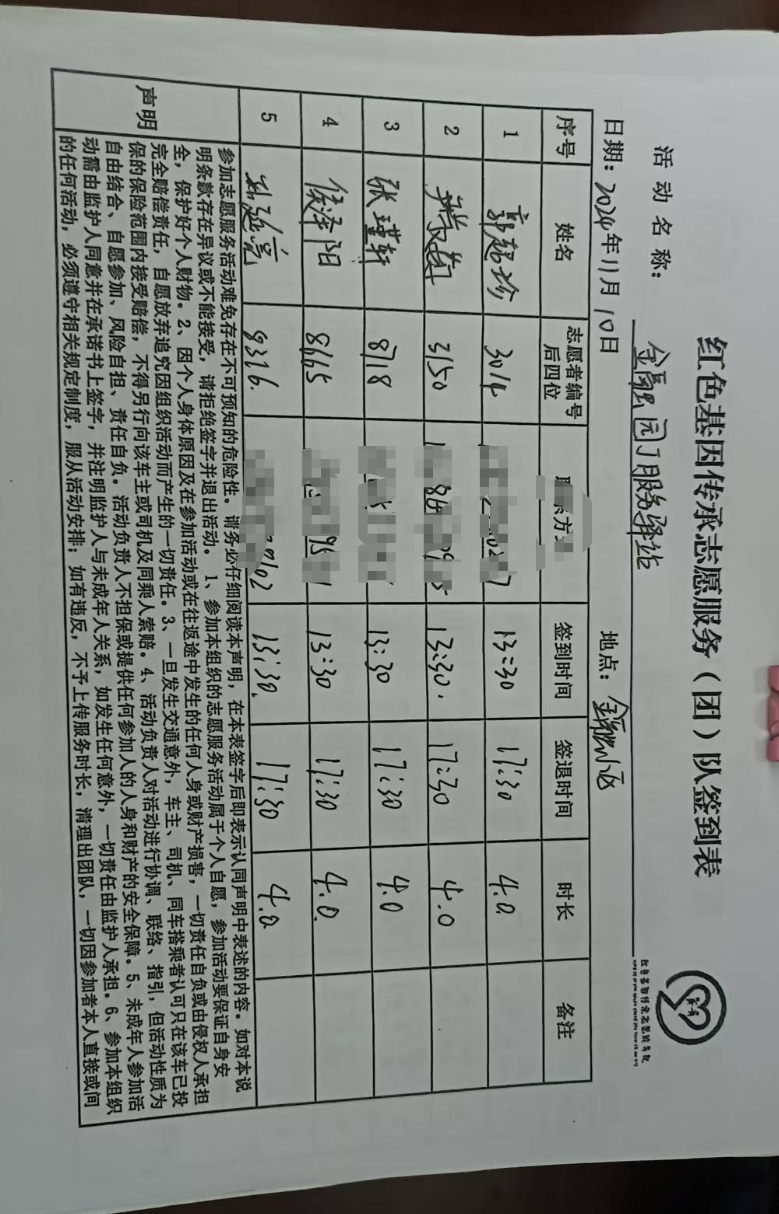 红色基因传承志愿服务（团）队签到表
活动名称： 园丁服务驿站
日期：2024年11月10日 地点： 小区
序号 姓名 志愿者编号后四位 签到时间 签退时间 时长 备注
1 3014 13:30 17:30 4.0
2 3150 13:30. 17:30 4.0
3 张瑾轩 8718 13:30 17:30 4.0
4 侯泽阳 8665 13:30 17:30 4.0.
5 8376. 13:30. 17:30 4.0.
声明
参加志愿服务活动难免存在不可预知的危险性。请务必仔细阅读本声明，在本表签字后即表示认同声明中表述的内容。如对本说
明条款存在异议或不能接受，请拒绝签字并退出活动。 1、参加本组织的志愿服务活动属于个人自愿，参加活动要保证自身安
全，保护好个人财物。2、因个人身体原因及在参加活动或在往返途中发生的任何人身或财产损害，一切责任自负或由侵权人承担
完全赔偿责任，自愿放弃追究因组织活动而产生的一切责任。3、一旦发生交通意外，车主、司机、同车搭乘者认可只在该车已投
保的保险范围内接受赔偿，不得另行向该车主或司机及同乘人索赔。4、活动负责人对活动进行协调、联络、指引，但活动性质为
自由结合、自愿参加、风险自担、责任自负。活动负责人不担保或提供任何参加人的人身和财产的安全保障。5、未成年人参加活
动需由监护人同意并在承诺书上签字，并注明监护人与未成年人关系，如发生任何意外，一切责任由监护人承担。6、参加本组织
的任何活动，必须遵守相关规定制度，服从活动安排；如有违反，不予上传服务时长，清理出团队，一切因参加者本人直接或间